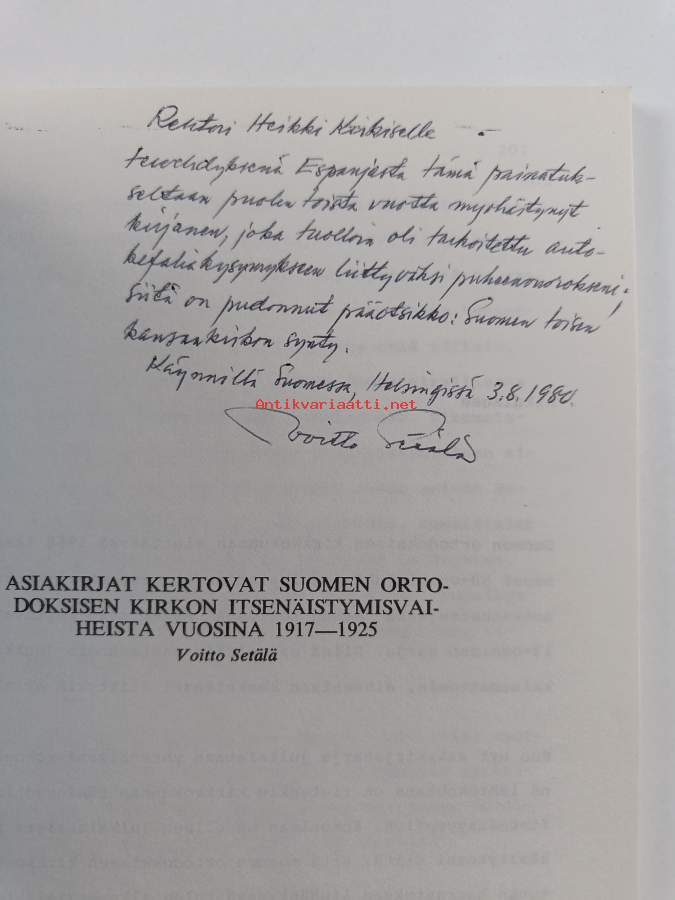 Rehtori Heikki Kirkiselle -
tervehdyksenä Espanjasta tämä painatuk-
seltaan puolen toista vuotta myöhästynyt
kirjanen, joka tuolloin oli tarkoitettu auto-
kefaliakysymykseen liittyväksi puheenvuorokseni;
Siitä on pudonnut pääotsikko: Suomen toisen
kansankirkon synty.
Käynnillä Suomessa, Helsingissä 3.8.1980.
Antikvariaatti.net
Voitto Setälä
ASIAKIRJAT KERTOVAT SUOMEN ORTO-
DOKSISEN KIRKON ITSENÄISTYMISVAI-
HEISTA VUOSINA 1917—1925
Voitto Setälä